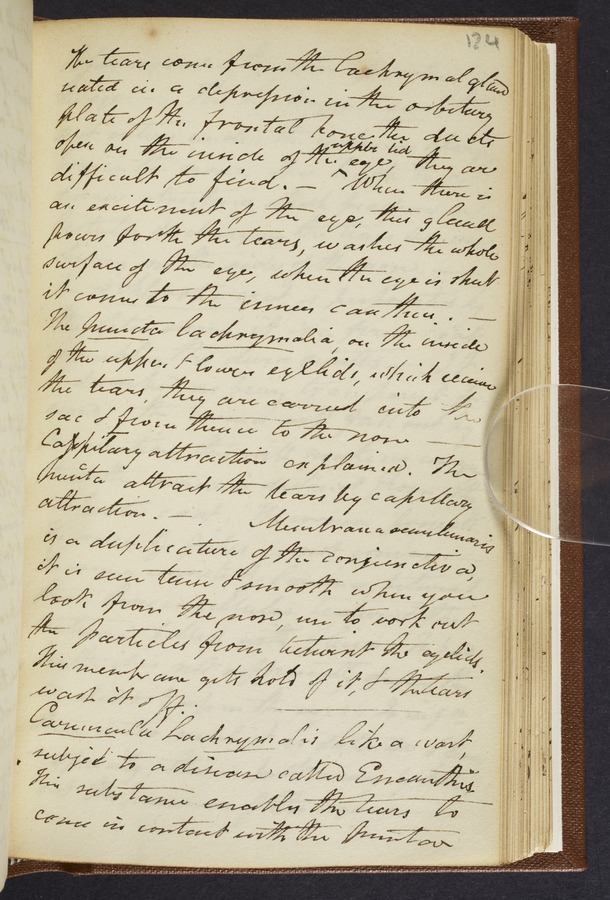 124
The tears come from the Lachrymal gland
uated in a depression in the orbitary
plate of the frontal bone the ducts
upper lid
open on the inside of the eye, they are
difficult to find. — When there is
an excitement of the eye, this gland
pours forth the tears, washes the whole
surface of the eye, when the eye is shut
it comes to the inner canthus. —
The puncta Lachrymalia, on the inside
of the upper & lower eyelids, which receive
the tears, they are carried into the
sac & from thence to the nose —
Cappilary attraction explained. The
puncta attract the tears by capillary
attraction. — Membrana semilunaris
is a duplicature of the conjunctiva,
it is seen tense & smooth when you
look from the nose, use to work out
the particles from betwixt the eyelids.
This membrane gets hold of it, & the tears
wash it off.
Caruncula Lachrymalis like a wart,
subject to a disease called Encanthis
This substance enables the tears to
come in contact with the punctae